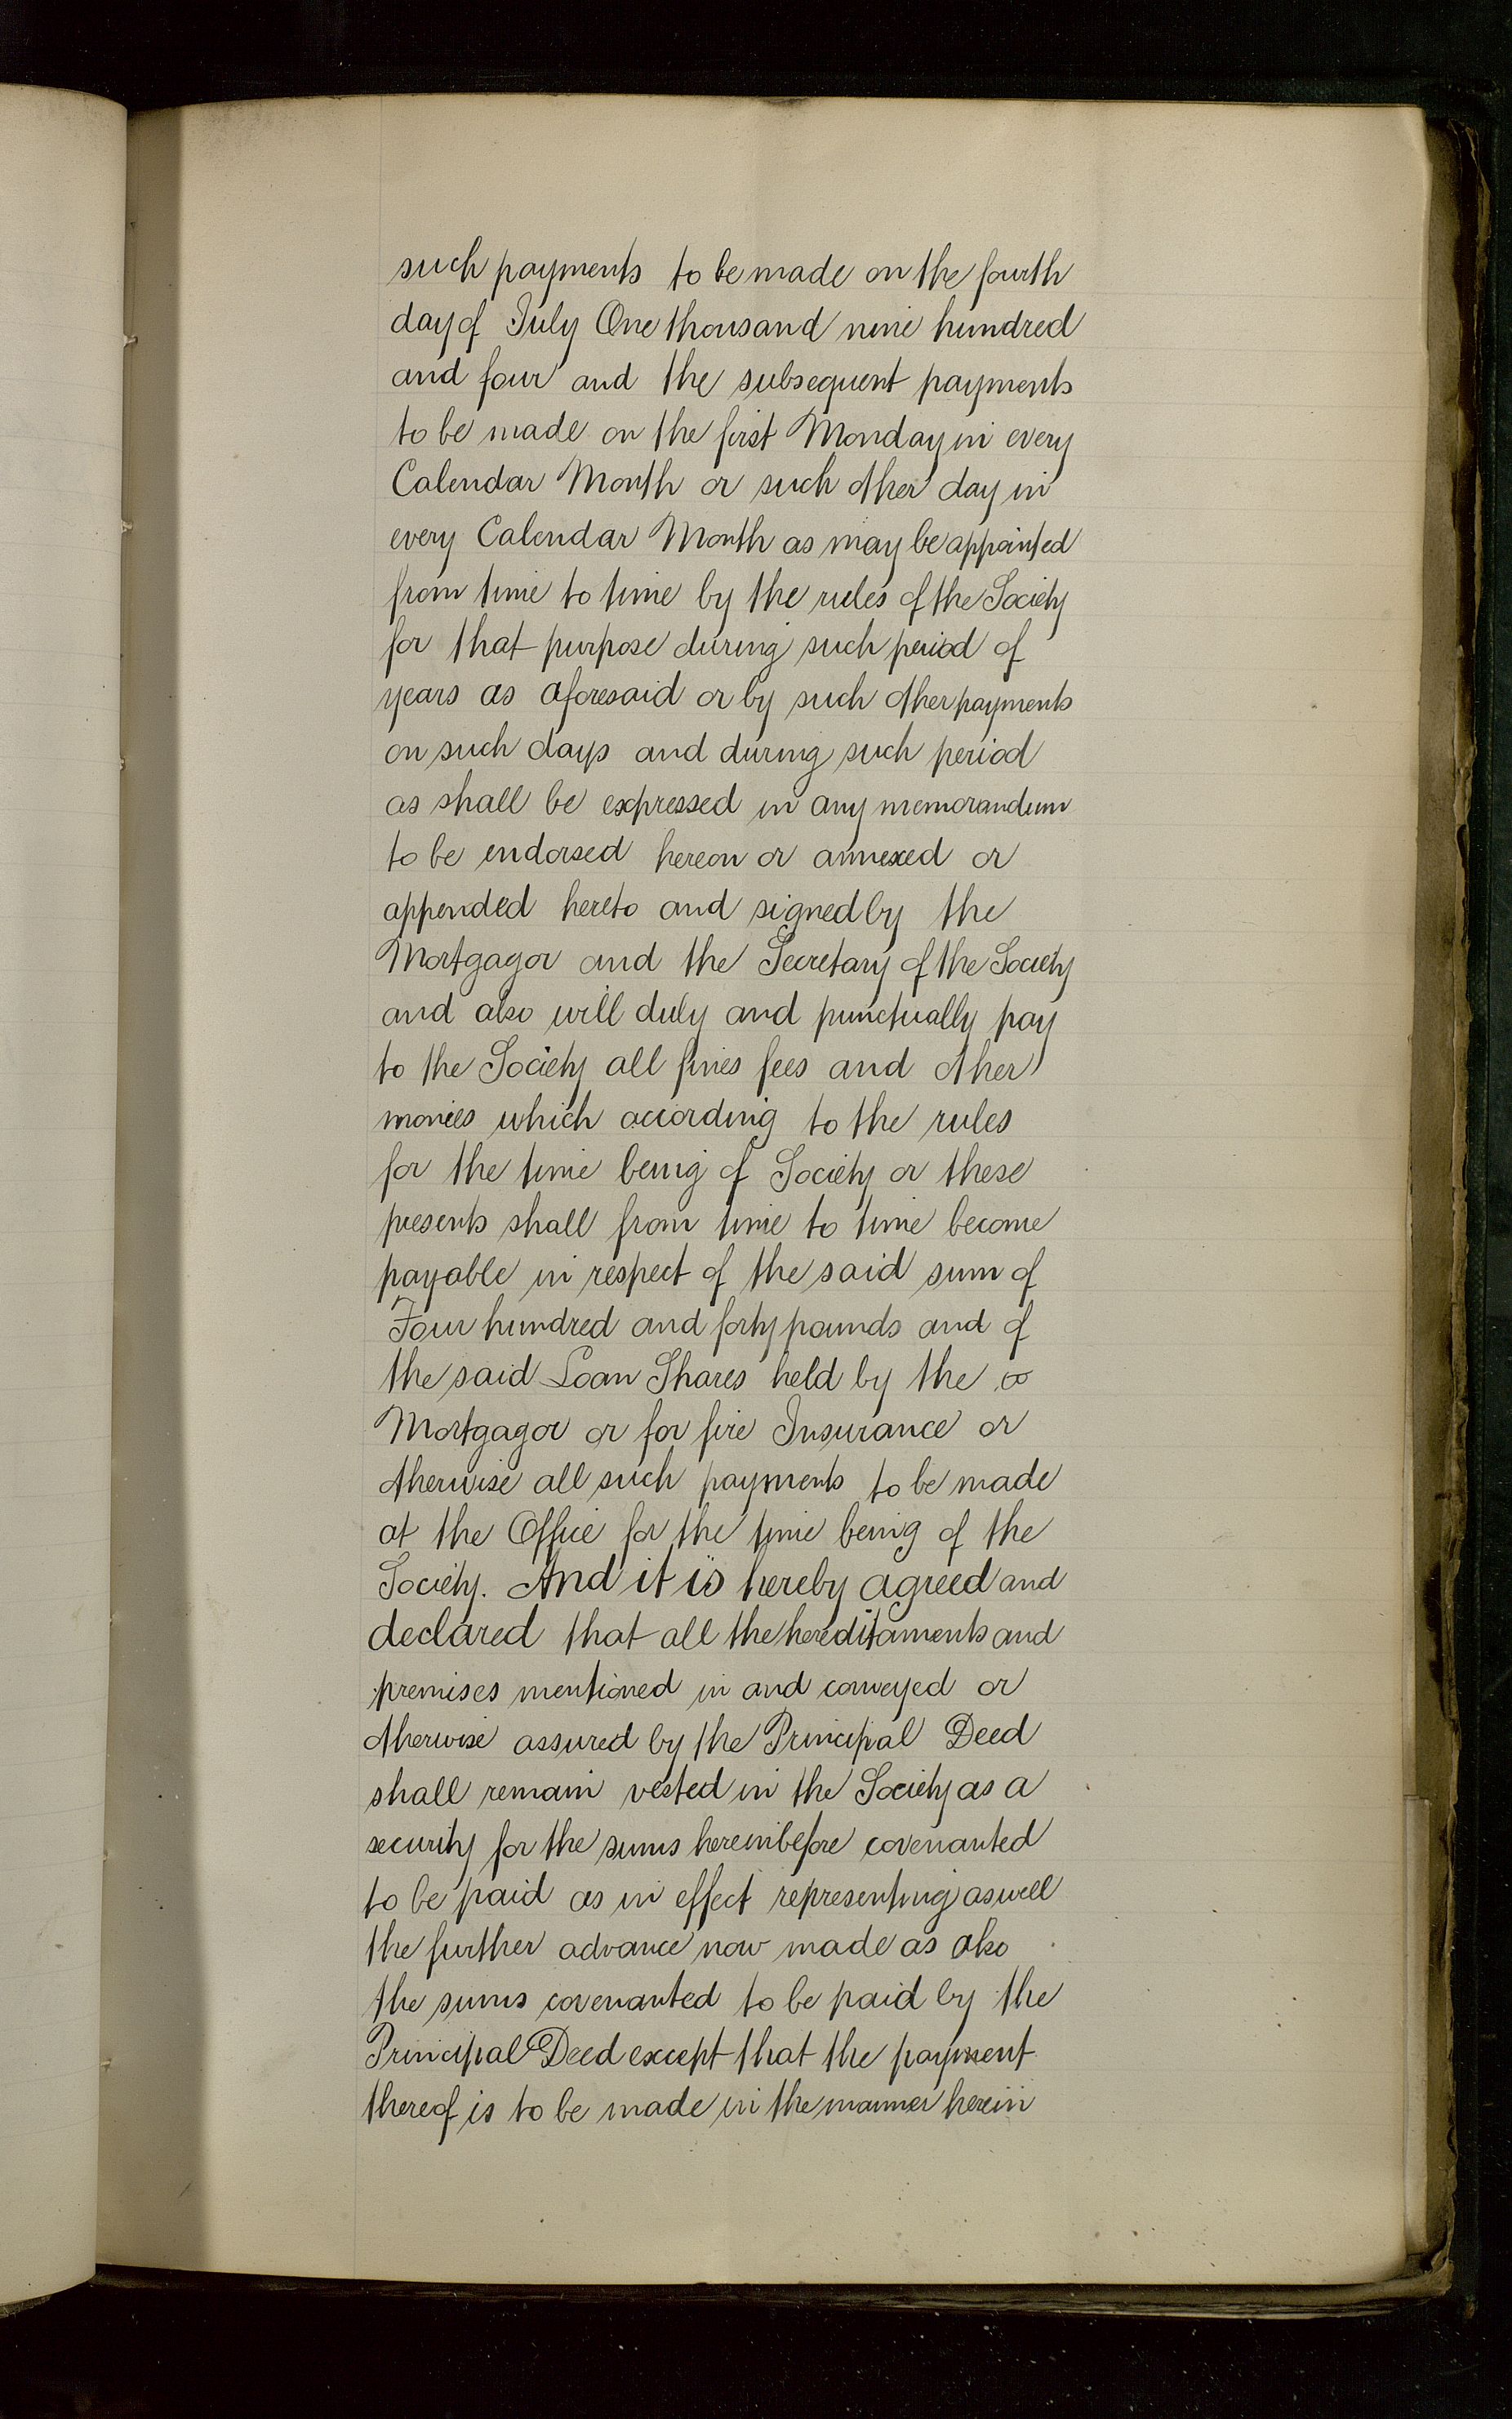 such payments to be made on the fourth
day of July One thousand nine hundred
and four and the subsequent payments
to be made on the first Monday in every
Calendar Month or such other day in
every Calendar Month as may be appointed
from time to time by the rules of the Society
for that purpose during such period of
years as aforesaid or by such other payments
on such days and during such period
as shall be expressed in any memorandum
to be endorsed hereon or annexed or
appended hereto and signed by the
Mortgagor and the Secretary of the Society
and also will duly and punctually pay
to the Society all fines fees and other
monies which according to the rules
for the time being of Society or these
presents shall from time to time become
payable in respect of the said sum of
Four hundred and forty pounds and of
the said Loan Shares held by the
Mortgagor or for fire Insurance or
otherwise all such payments to be made
at the Office for the time being of the
Society. And it is hereby agreed and
declared that all the hereditaments and
premises mentioned in and conveyed or
otherwise assured by the Principal Deed
shall remain vested in the Society as a
security for the sums hereinbefore covenanted
to be paid as in effect representing as well
the further advance now made as also
the sums covenanted to be paid by the
Principal Deed except that the payment
thereof is to be made in the manner herein